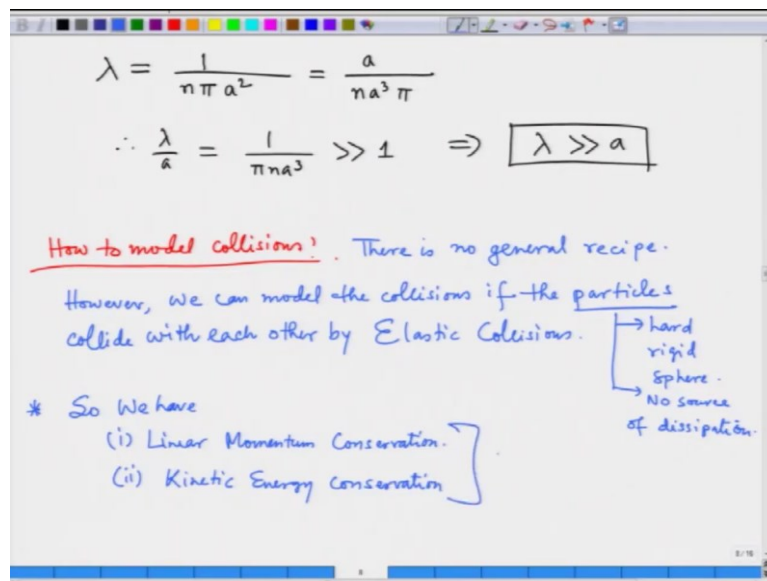 λ = 1 / nπa² = a / na³π
∴ λ/a = 1 / πna³ >> 1 ⇒ λ >> a
How to model collisions? . There is no general recipe.
However, we can model the collisions if the particles
collide with each other by Elastic Collisions.
→ hard
rigid
Sphere.
→ No source
of dissipation.
* So We have
(i) Linear Momentum Conservation.
(ii) Kinetic Energy Conservation
8/16
8